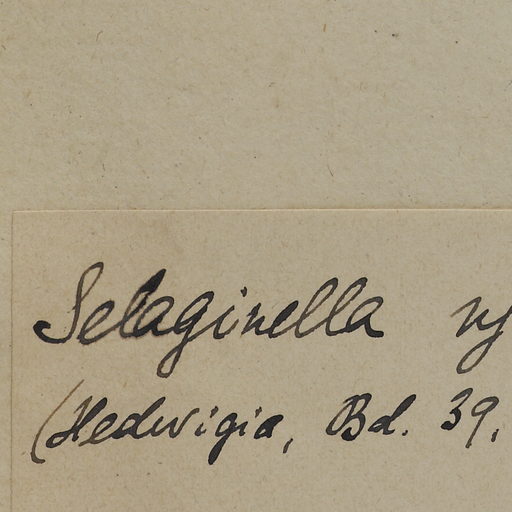 Selaginella
(Hedwigia, Bd. 39,